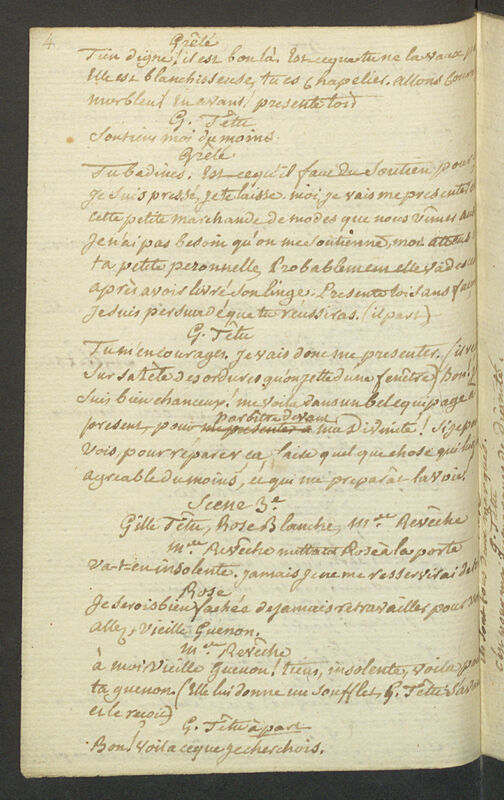 4
Grêlé
Tien digne! il est bon là. Est ceque tu ne la vaux pas
Elle est blanchisseuse, tu es chapelier. allons
morbleu! en avant! presente toi
G. Têtu
Soutiens moi du moins.
Grêlé
Tu badines. Est cequ'il faut du Soutien pour
je suis pressé, je te laisse. moi, je vais me presenter
cette petite marchande de modes que nous vimes
Je n'ai pas besoin qu'on me soutienne, moi attens
ta petite personnelle, Probablement elle va
après avoir livré son linge. Presente toi sans façon
Je suis persuadé que tu reussiras. (il part)
G. Têtu
Tu m'encourages. je vais donc me presenter. (il
sur sa tête des ordures qu'on jette d'une fenêtre) Bon! je
suis bien chanceux! me voila dans un bel equipage à
paroitre devant
present, pour me presenter à ma Divinité! Si je
vois, pour réparer ca, faire quelque chose qui
agreable du moins, et qui me preparât la voie.
Scene 3.e
Gille Têtu, Rose Blanche, M.elle Revêche
M.elle Revêche mettant Rose à la porte
va-t-en insolente. jamais je ne me resservirai de
Rose
Je serois bien fachée de jamais retravailler pour
allez, vieille Guenon.
M.elle Revêche
à moi vieille Guenon! tiens, insolente, voila pour
ta guenon. (Elle lui donne un soufflet, G. Têtu
et le reçoit)
G. Têtu à part
Bon! voila ceque je cherchois.